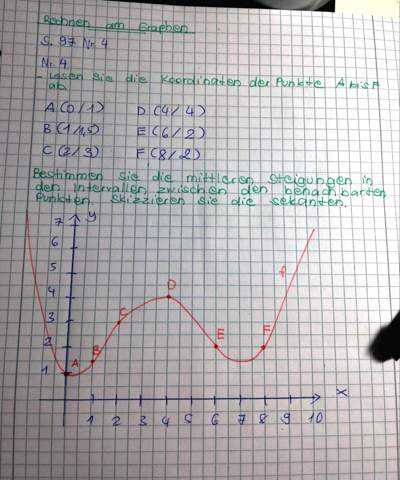 Rechnen am Graphen
S. 97 Nr. 4
Nr. 4
- Lesen sie die Koordinaten der Punkte A bis F
ab.
A (0/1) D (4/4)
B (1/1,5) E (6/2)
C (2/3) F (8/2)
Bestimmen Sie die mittleren Steigungen in
den Intervallen zwischen den benachbarten
Punkten. Skizzieren sie die sekanten.
7 y
6
5 f
4 D
3 C
2 B E F
1 A
x
1 2 3 4 5 6 7 8 9 10